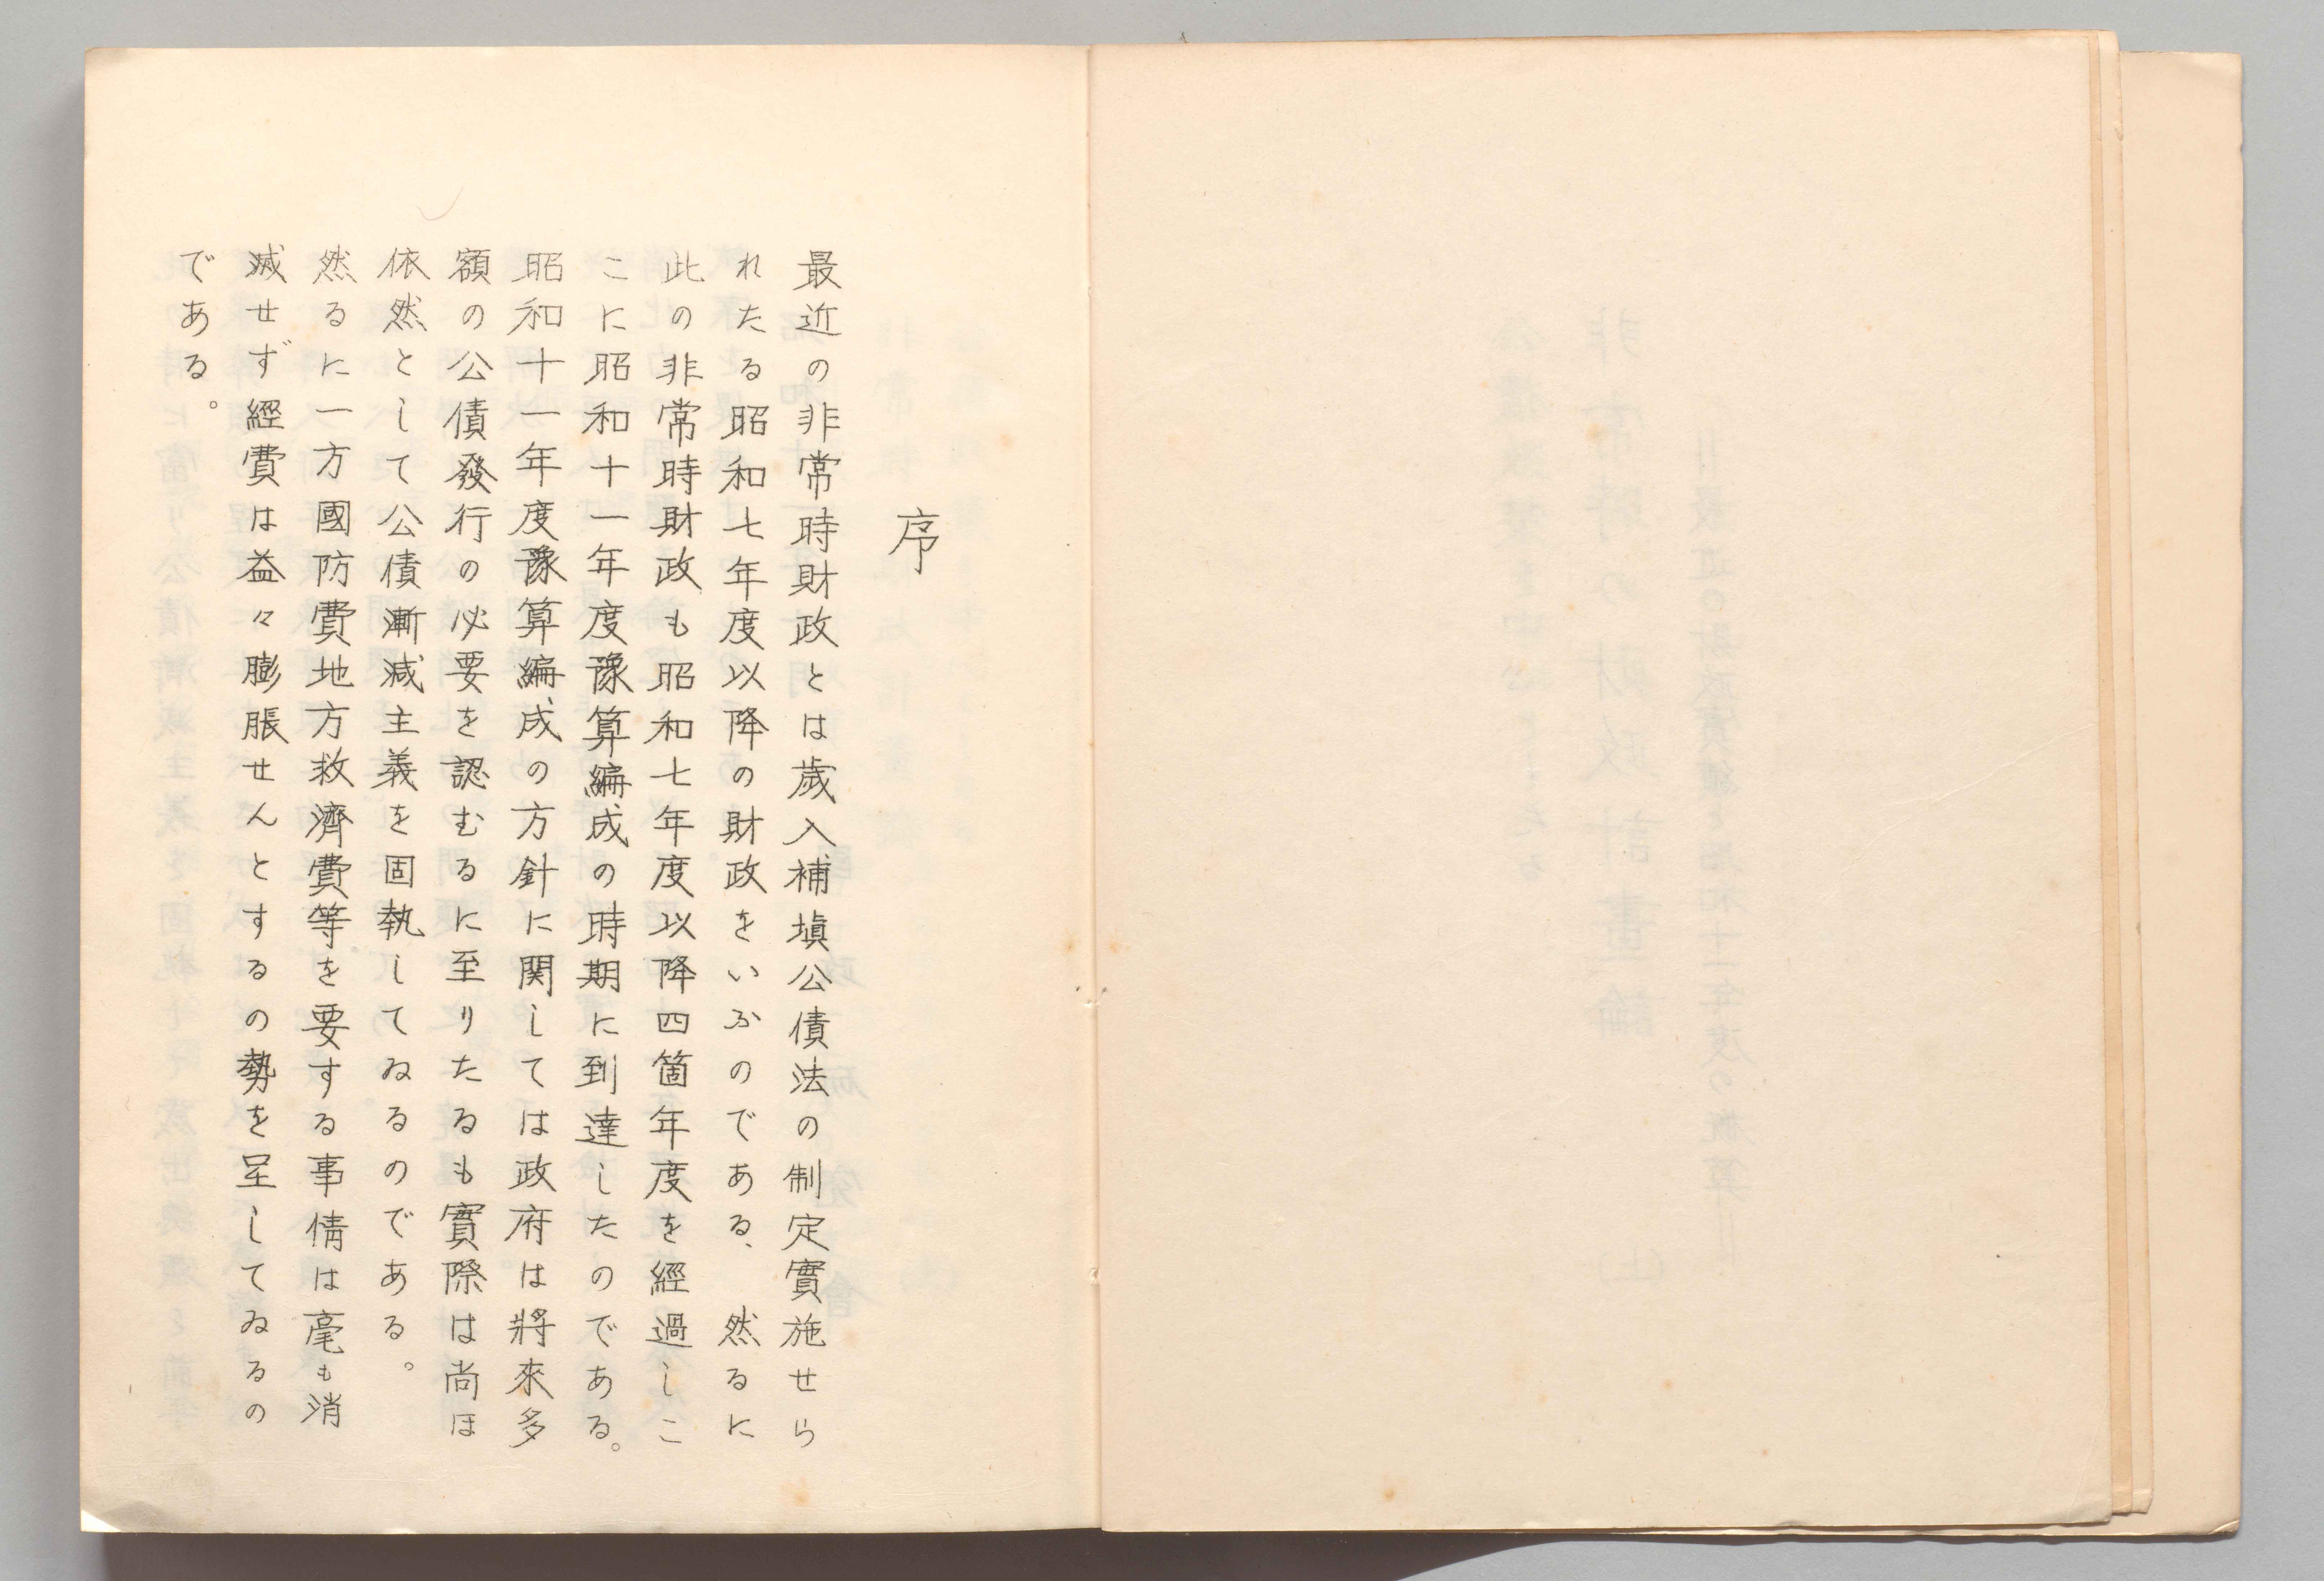 序
最近の非常時財政とは歲入補塡公債法の制定實施せら
れたる昭和七年度以降の財政をいふのである、然るに
此の非常時財政も昭和七年度以降四箇年度を經過しこ
こに昭和十一年度豫算編成の時期に到達したのである。
昭和十一年度豫算編成の方針に関しては政府は將來多
額の公債發行の必要を認むるに至りたるも實際は尚ほ
依然として公債漸減主義を固執してゐるのである。
然るに一方國防費地方救濟費等を要する事情は毫も消
滅せず經費は益々膨脹せんとするの勢を呈してゐるの
である。